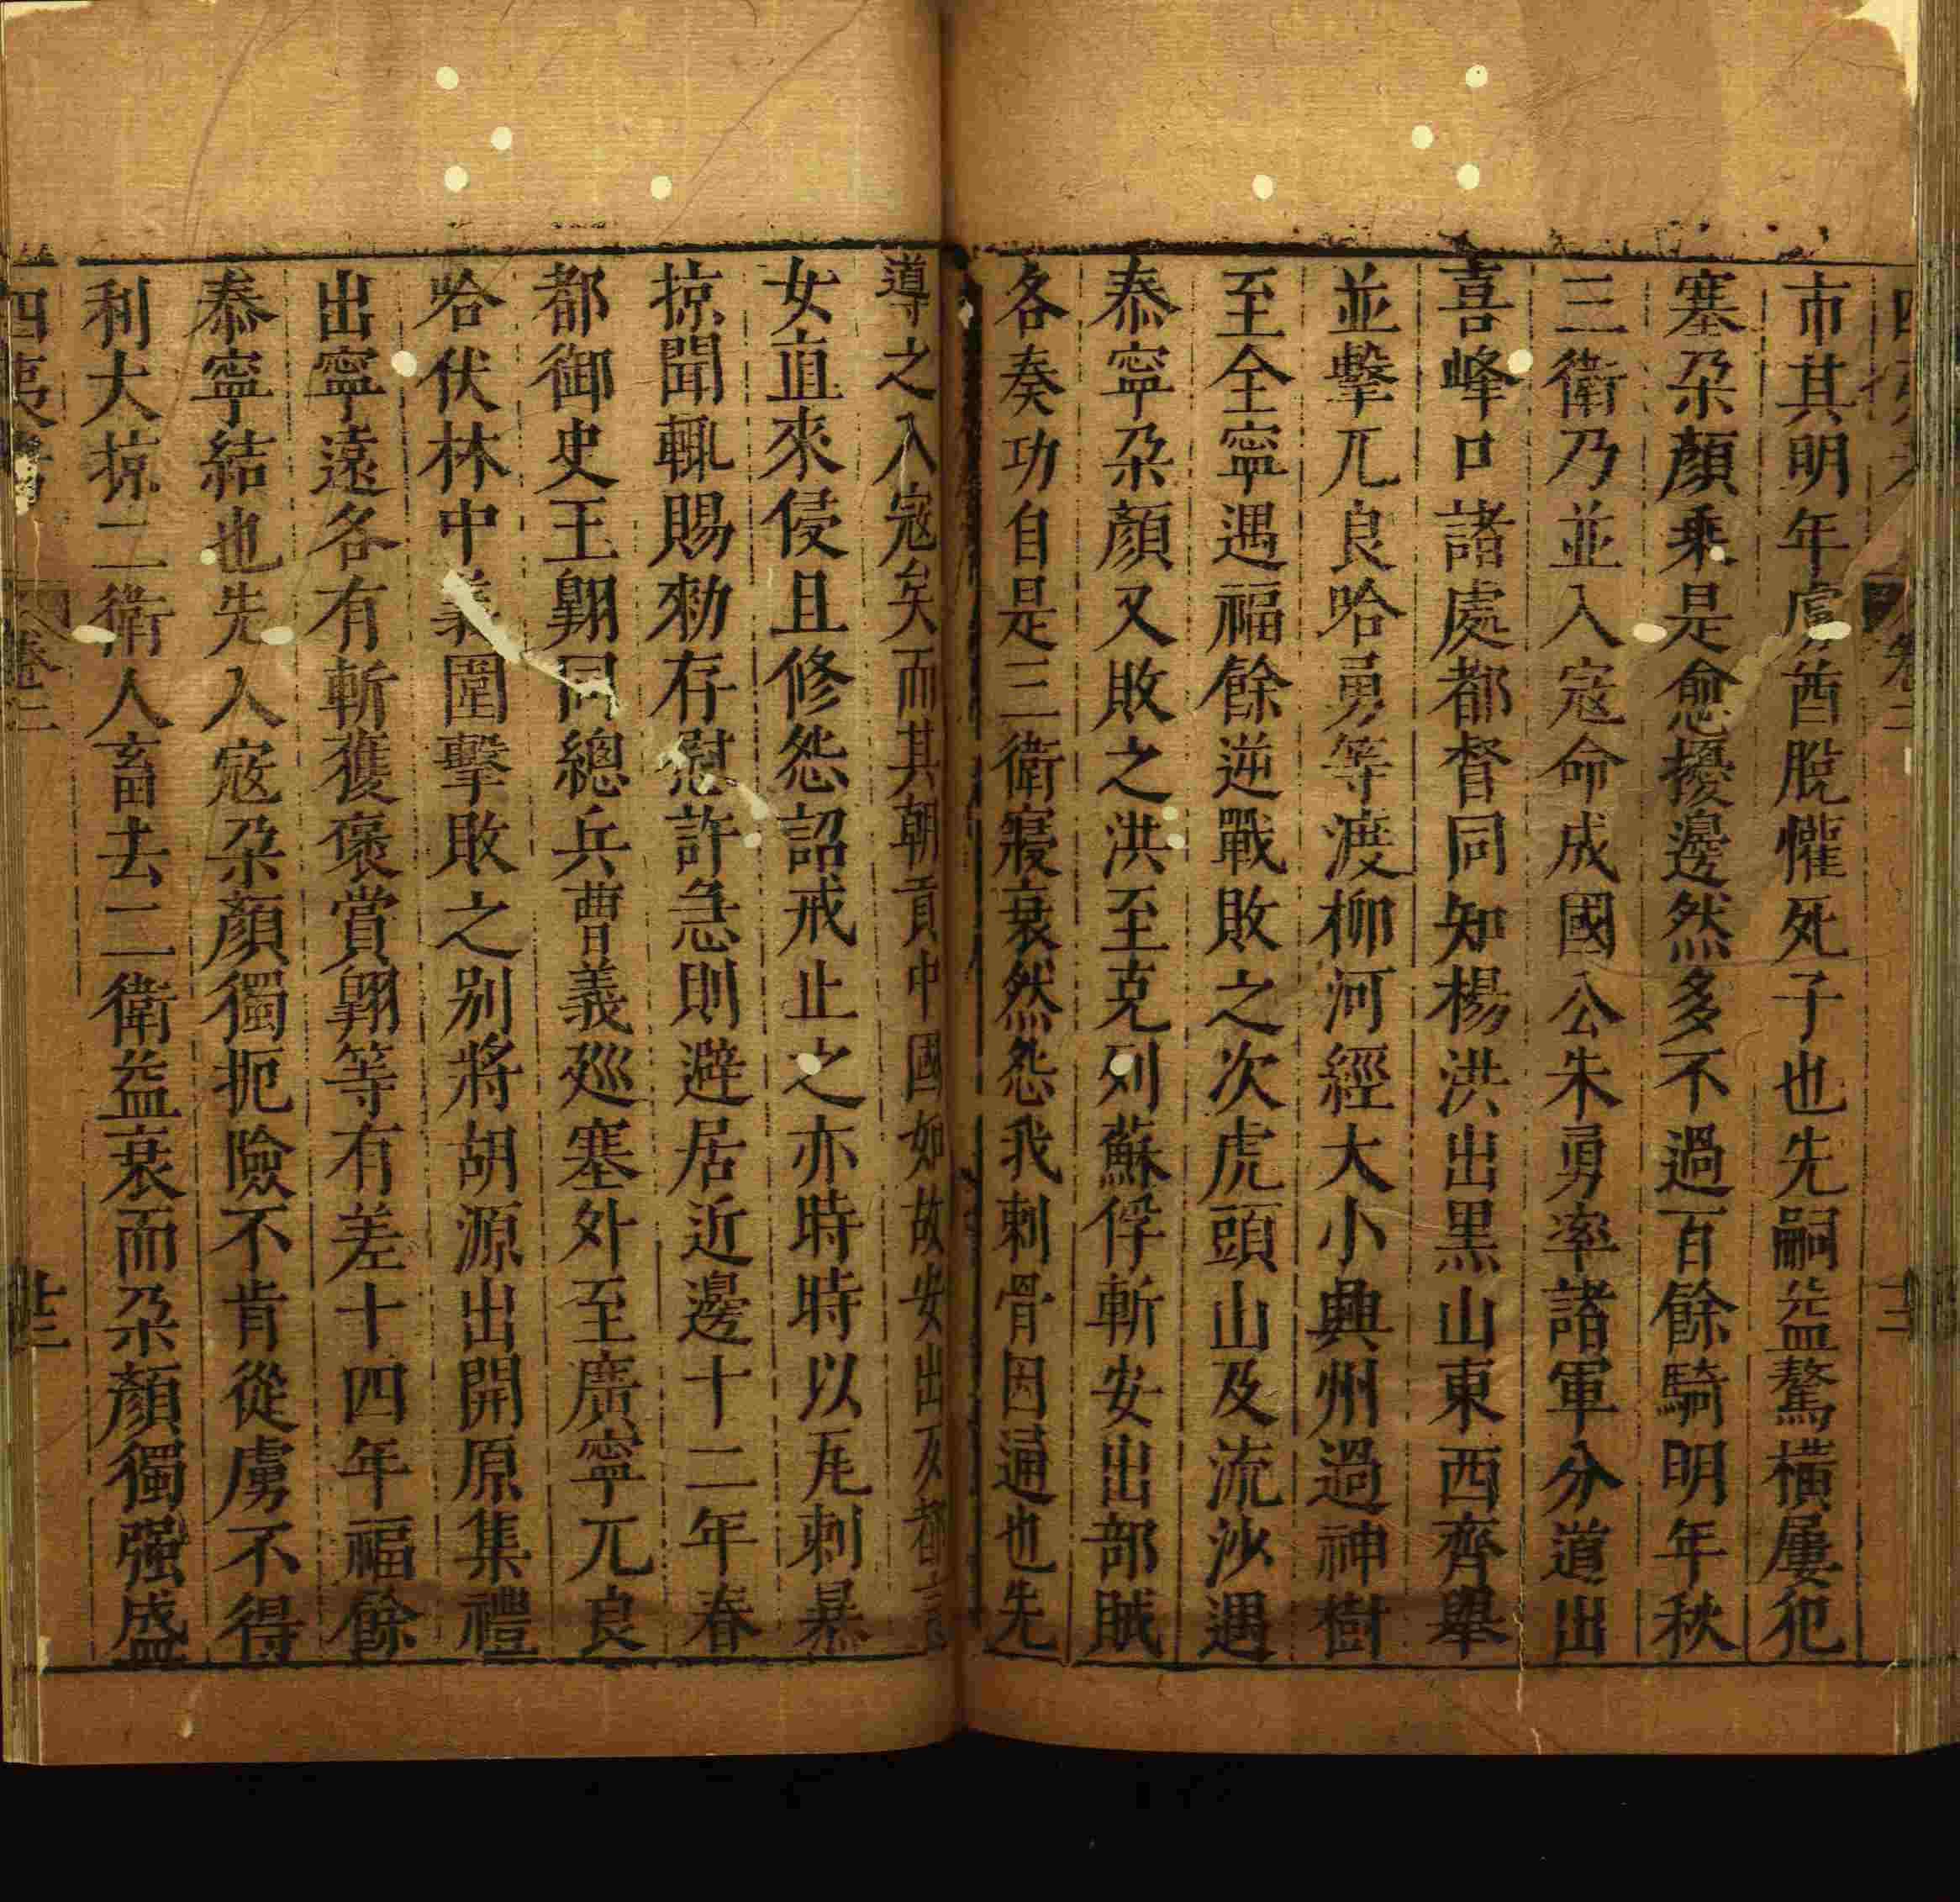 市其明年虜酋脫懽死子也先嗣益驁橫屢犯
塞朶顏乘是愈擾邊然多不過百餘騎明年秋
三衛乃並入寇命成國公朱勇率諸軍分道出
喜峰口諸處都督同知楊洪出黑山東西齊舉
並擊兀良哈勇等渡柳河經大小興州過神樹
至全寧遇福餘逆戰敗之次虎頭山及流沙遇
泰寧朶顏又敗之洪至克列蘇俘斬安出部賊
各奏功自是三衛寢衰然怨我刺骨因通也先
導之入寇矣而其朝貢中國如故安出及都
女直來侵且修怨詔戒止之亦時時以瓦剌暴
掠聞輒賜勑存慰許急則避居近邊十二年春
都御史王翺同總兵曹義廵塞外至廣寧兀良
哈伏林中義圍擊敗之别將胡源出開原集禮
出寧遠各有斬獲褒賞翺等有差十四年福餘
泰寧結也先入寇朶顏獨扼險不肯從虜不得
利大掠二衛人畜去二衛益衰而朶顏獨强盛
四夷 卷二 廿三